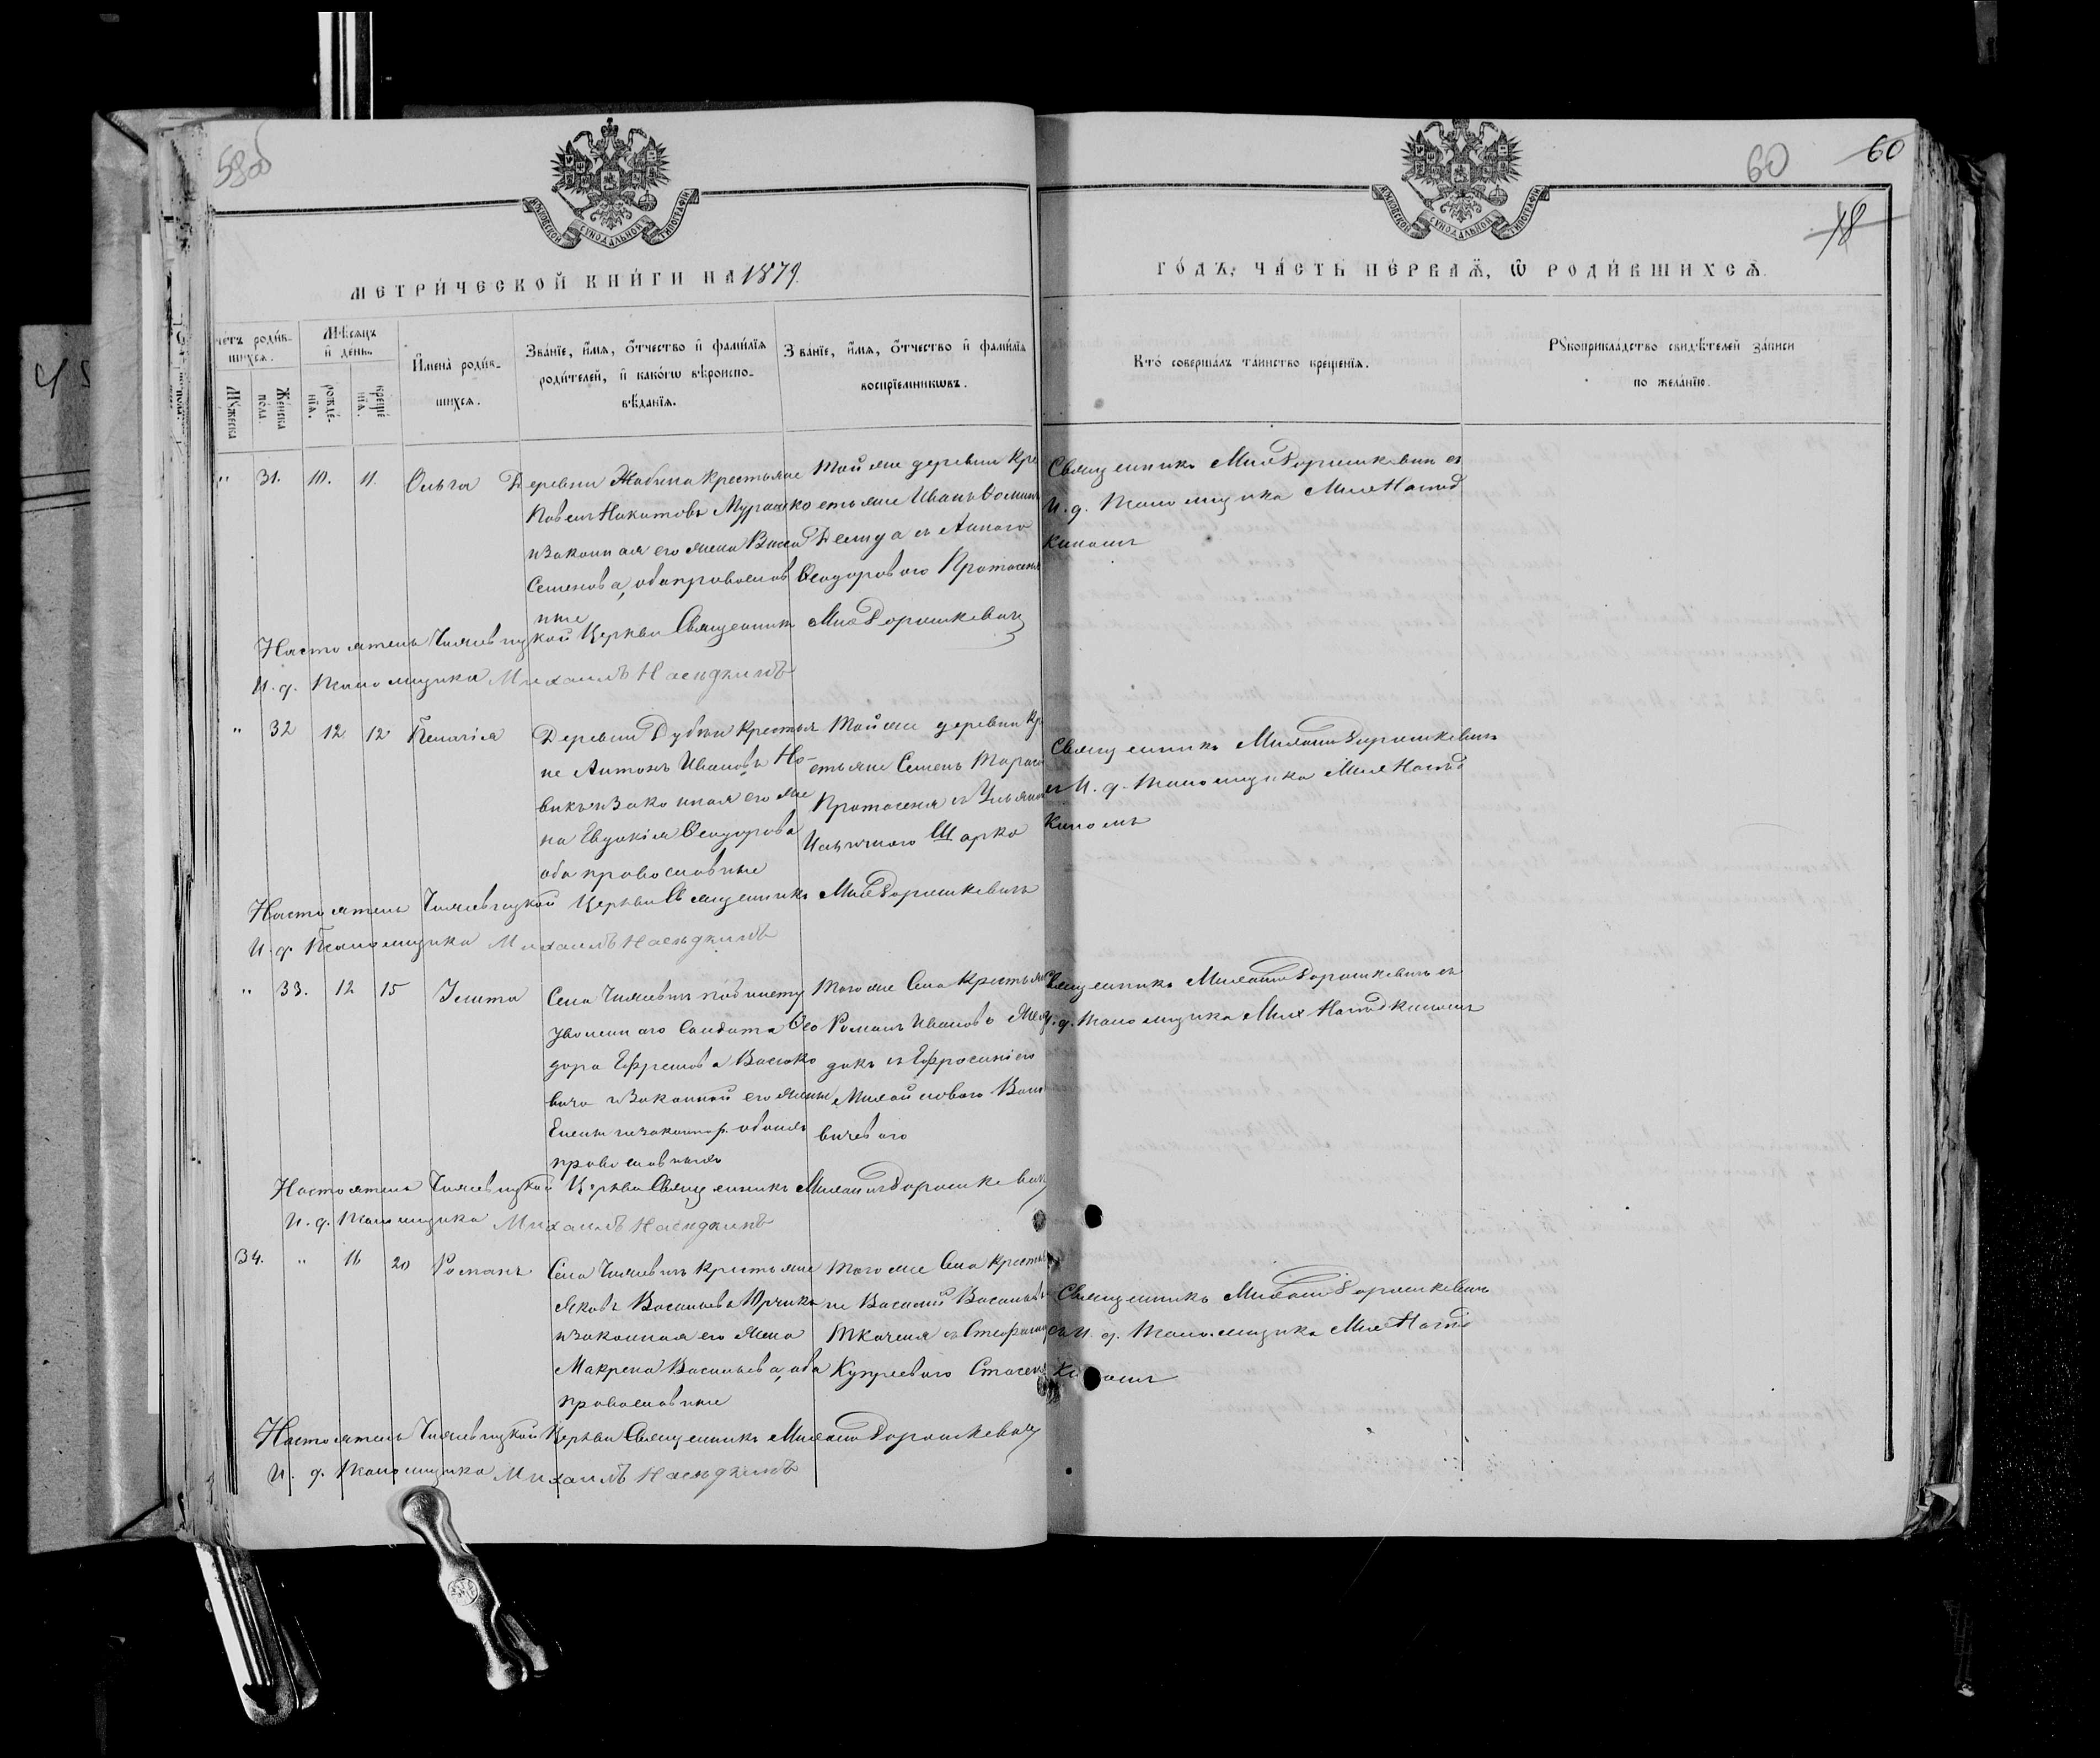 58об
60
60
18
МЕТРИ́ЧЕСКОЙ КНИ́ГИ НА 1879.
ГО́ДЪ, ЧА́СТЬ ПЕ́РВАѦ, Ѡ҆ РОДИ́ВШИХСѦ.
Сче́тъ роди́в-
шихся.
Мѣ́сяцъ
и҆ день.
Мꙋ́жеска
Же́нска
по́ла.
рожде́-
нїѧ.
креще́
нїѧ.
И҆мена̀ роди́в-
шихся.
Зва́нїе, и҆́мѧ, ѻ҆́тчество и҆ фами́лїѧ
роди́телей, и҆ како́гѡ вѣроиспо-
вѣ́данїѧ.
Зва́нїе, и҆́мѧ, ѻ҆́тчество и҆ фами́лїѧ
воспрїе́мникѡвъ.
Кто̀ соверша́лъ та́инство креще́нїѧ.
Рꙋкоприкла́дство свидѣ́телей за́писи
по жела́нїю.
" 31. 10. 11. Ольга
Деревни Жабина крестьяне
Павелъ Никитовъ Мурашко
и законная его жена Васса
Семенова, оба православ
ные
Той же деревни кре
стьяне Иванъ Ѳоминъ
Демида съ Анною
Ѳеодоровою Протасеня
Священникъ Мих Дорошкевичъ съ
И. д. Псаломщика Мих Наѣд
кинымъ
Настоятель Чижевицкой Церкви Священникъ Мих Дорошкевичъ
И. д. Псаломщика Михаилъ Наѣдкинъ
" 32 12 12 Пелагія
Деревни Дубеи крестья
не Антонъ Ивановъ Но-
викъ и законная его же
на Евдокія Ѳеодорова
оба православные
Той же деревни кр
стьяне Семенъ Тарасо
Протасеня съ Ульяною
Шарко
Священникъ Михаилъ Дорошкевичъ
съ И. д. Псаломщика Мих Наѣд
кинымъ
Настоятель Чижевицкой Церкви Священникъ Мих Дорошкевичъ
И. д. Псаломщика Михаилъ Наѣдкинъ
" 33. 12 15 Улита
Села Чижевичъ по билету
уволеннаго Солдата Ѳео
дора Ефремова Василе
вича и законной его жены
Елены незаконнор. обоихъ
православныхъ
Того же Села крестьян
Романъ Ивановъ
съ Ефросиніею
Михайловою Васи
вичевою
Священникъ Михаилъ Дорошкевичъ съ
И. д. Псаломщика Мих Наѣдкинымъ
Настоятель Чижевицкой Церкви Священникъ Михаилъ Дорошкевичъ
И. д. Псаломщика Михаилъ Наѣдкинъ
34. " 16 20 Романъ
Села Чижевичъ крестьяне
Яковъ Васильевъ Юрчикъ
и законная его жена
Макрена Васильева, оба
православные
Того же Села крестья
не Василій Васильевъ
Ткаченя съ Стефанид
Купреевою Стасеня
Священникъ Михаилъ Дорошкевичъ
съ И. д. Псаломщика Мих Наѣд
кинымъ
Настоятель Чижевицкой Церкви Священникъ Михаилъ Дорошкевичъ
И. д. Псаломщика Михаилъ Наѣдкинъ